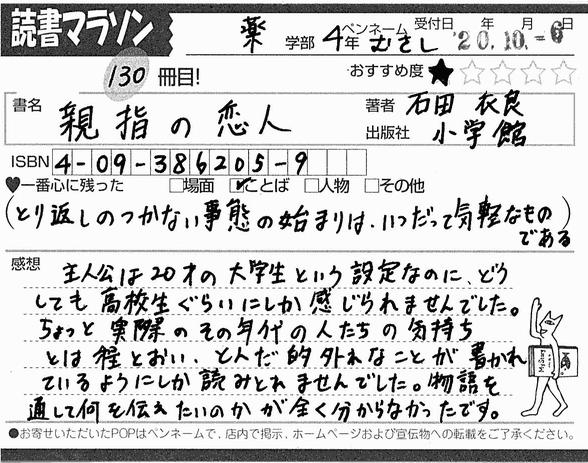 読書マラソン
薬 学部 4年 ペンネーム むさし 受付日 '20年10月-6日
130 冊目! おすすめ度 ★☆☆☆☆
書名 親指の恋人 著者 石田 衣良
出版社 小学館
ISBN 4-09-386205-9
♥一番心に残った □場面 ☑ことば □人物 □その他
(とり返しのつかない事態の始まりは、いつだって気軽なもの
である)
感想 主人公は20才の大学生という設定なのに、どう
しても高校生ぐらいにしか感じられませんでした。
ちょっと実際のその年代の人たちの気持ち
とは程とおい、とんだ的外れなことが書かれ
ているようにしか読みとれませんでした。物語を
通して何を伝えたいのかが全く分からなかったです。
●お寄せいただいたPOPはペンネームで、店内で掲示、ホームページおよび宣伝物への転載をご了承ください。